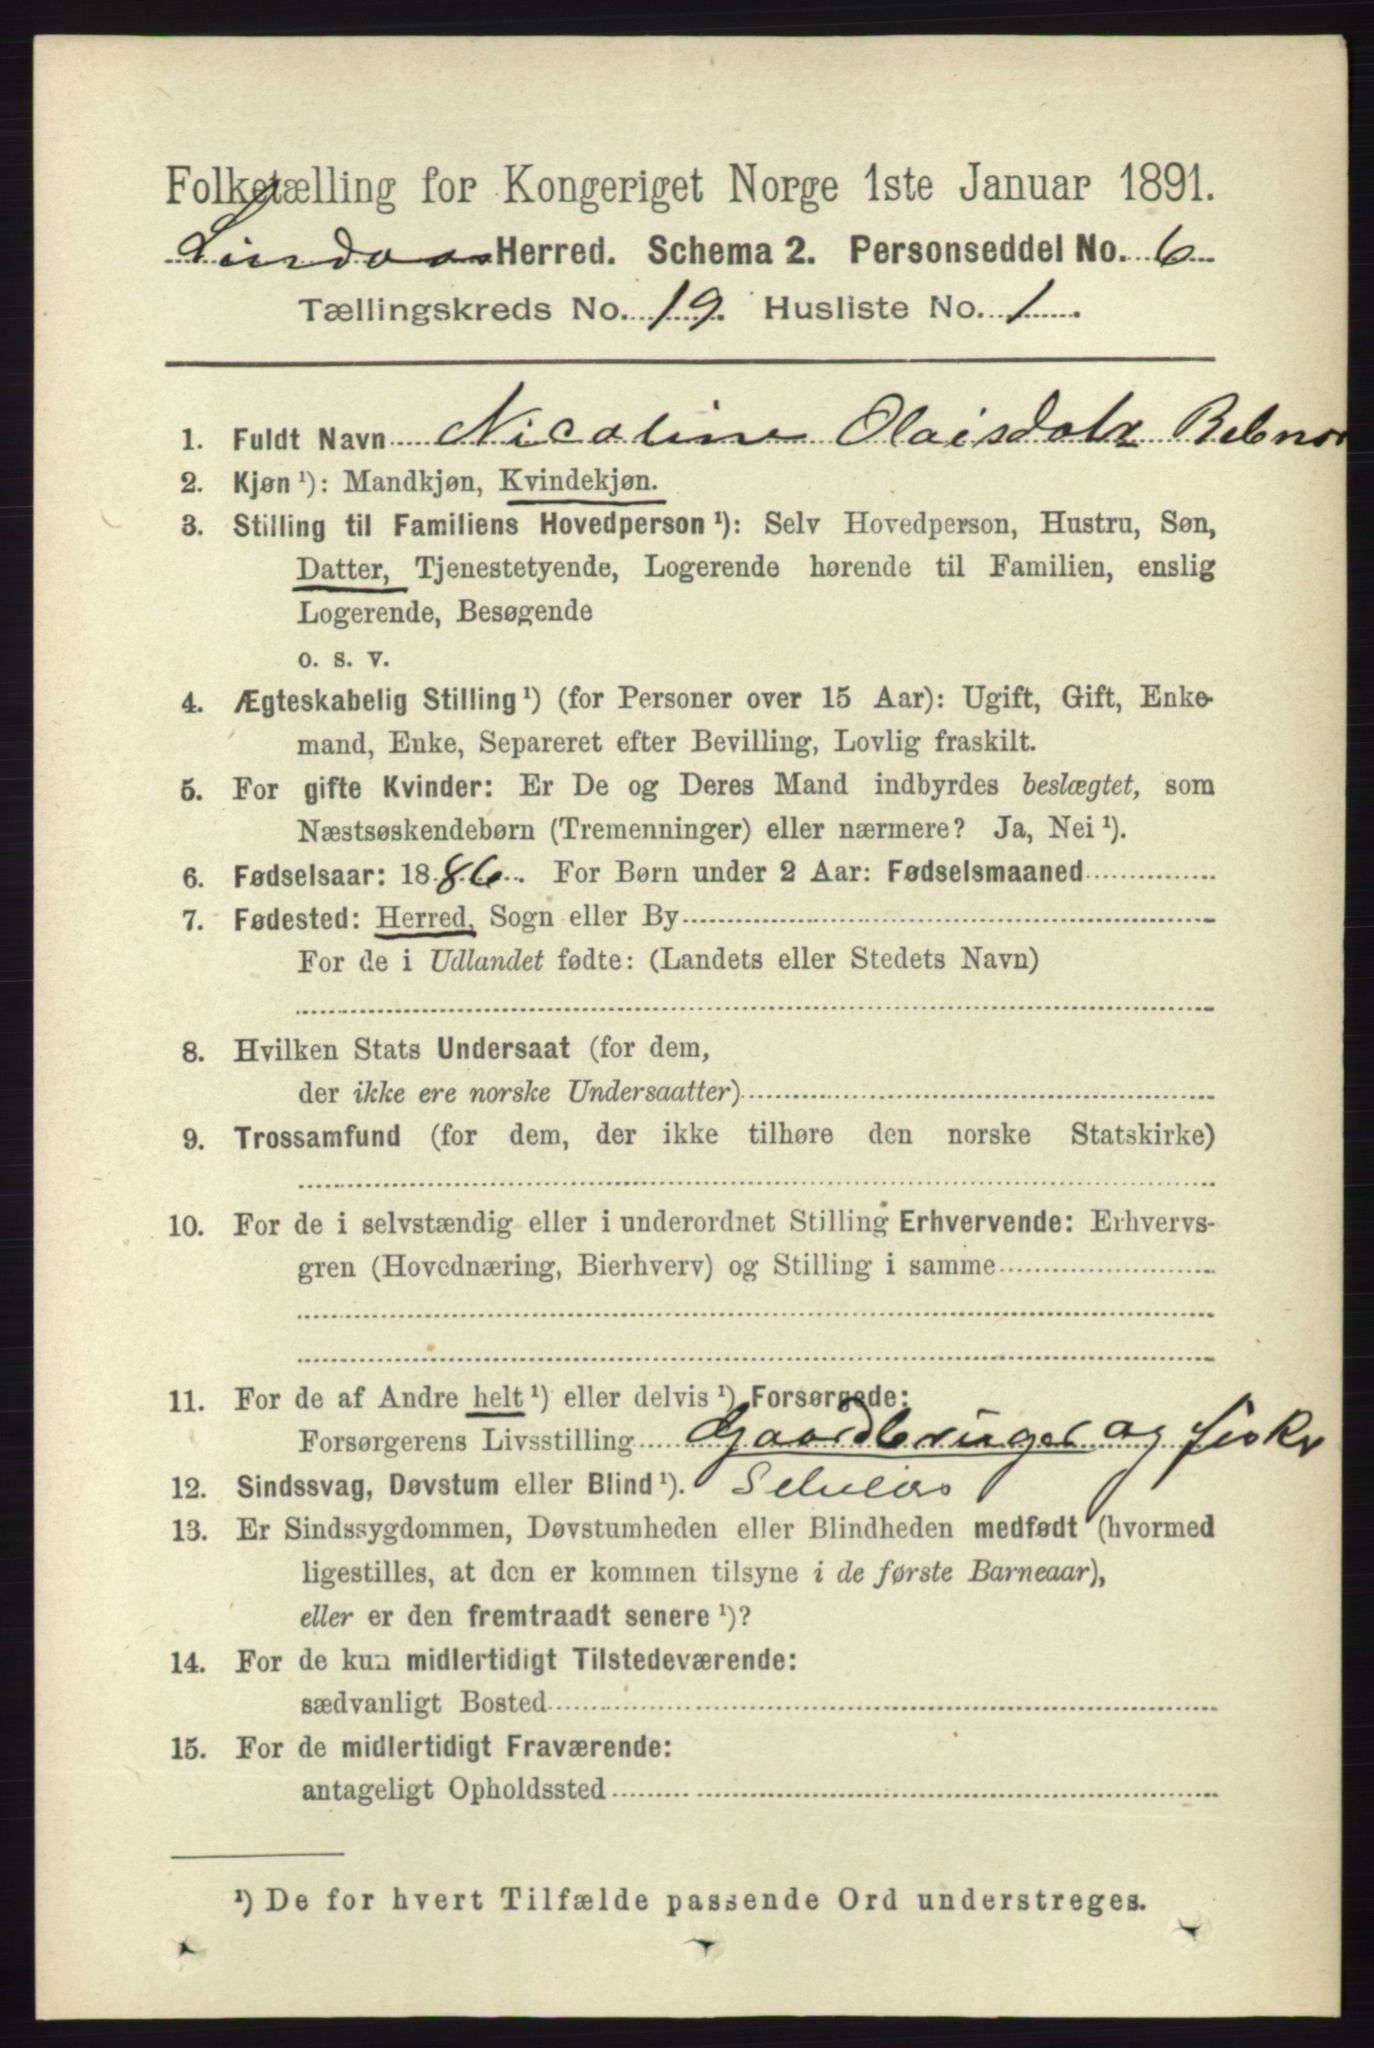 Folketælling for Kongeriget Norge 1ste Januar 1891.
Lindaas Herred. Schema 2. Personseddel No. 6
Tællingskreds No. 19. Husliste No. 1.
1. Fuldt Navn Nicoline Olaisdatr
2. Kjøn ¹): Mandkjøn, Kvindekjøn.
3. Stilling til Familiens Hovedperson ¹): Selv Hovedperson, Hustru, Søn,
Datter, Tjenestetyende, Logerende hørende til Familien, enslig
Logerende, Besøgende
o. s. v.
4. Ægteskabelig Stilling ¹) (for Personer over 15 Aar): Ugift, Gift, Enke-
mand, Enke, Separeret efter Bevilling, Lovlig fraskilt.
5. For gifte Kvinder: Er De og Deres Mand indbyrdes beslægtet, som
Næstsøskendebørn (Tremenninger) eller nærmere? Ja, Nei ¹).
6. Fødselsaar: 1886. For Børn under 2 Aar: Fødselsmaaned
7. Fødested: Herred, Sogn eller By
For de i Udlandet fødte: (Landets eller Stedets Navn)
8. Hvilken Stats Undersaat (for dem,
der ikke ere norske Undersaatter)
9. Trossamfund (for dem, der ikke tilhøre den norske Statskirke)
10. For de i selvstændig eller i underordnet Stilling Erhvervende: Erhvervs-
gren (Hovednæring, Bierhverv) og Stilling i samme
11. For de af Andre helt ¹) eller delvis ¹) Forsørgede:
Forsørgerens Livsstilling Gaardbruger og fisker
12. Sindssvag, Døvstum eller Blind ¹). Selveier
13. Er Sindssygdommen, Døvstumheden eller Blindheden medfødt (hvormed
ligestilles, at den er kommen tilsyne i de første Barneaar),
eller er den fremtraadt senere ¹)?
14. For de kun midlertidigt Tilstedeværende:
sædvanligt Bosted
15. For de midlertidigt Fraværende:
antageligt Opholdssted
¹) De for hvert Tilfælde passende Ord understreges.